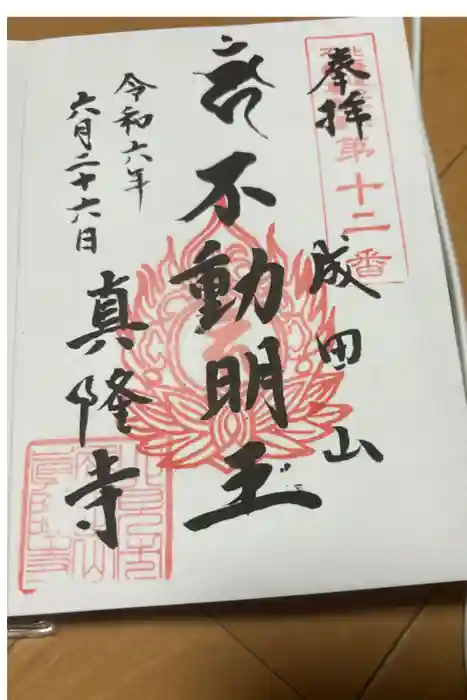 奉拝
第十二番
成田山
不動明王
令和六年
六月二十六日
真隆寺